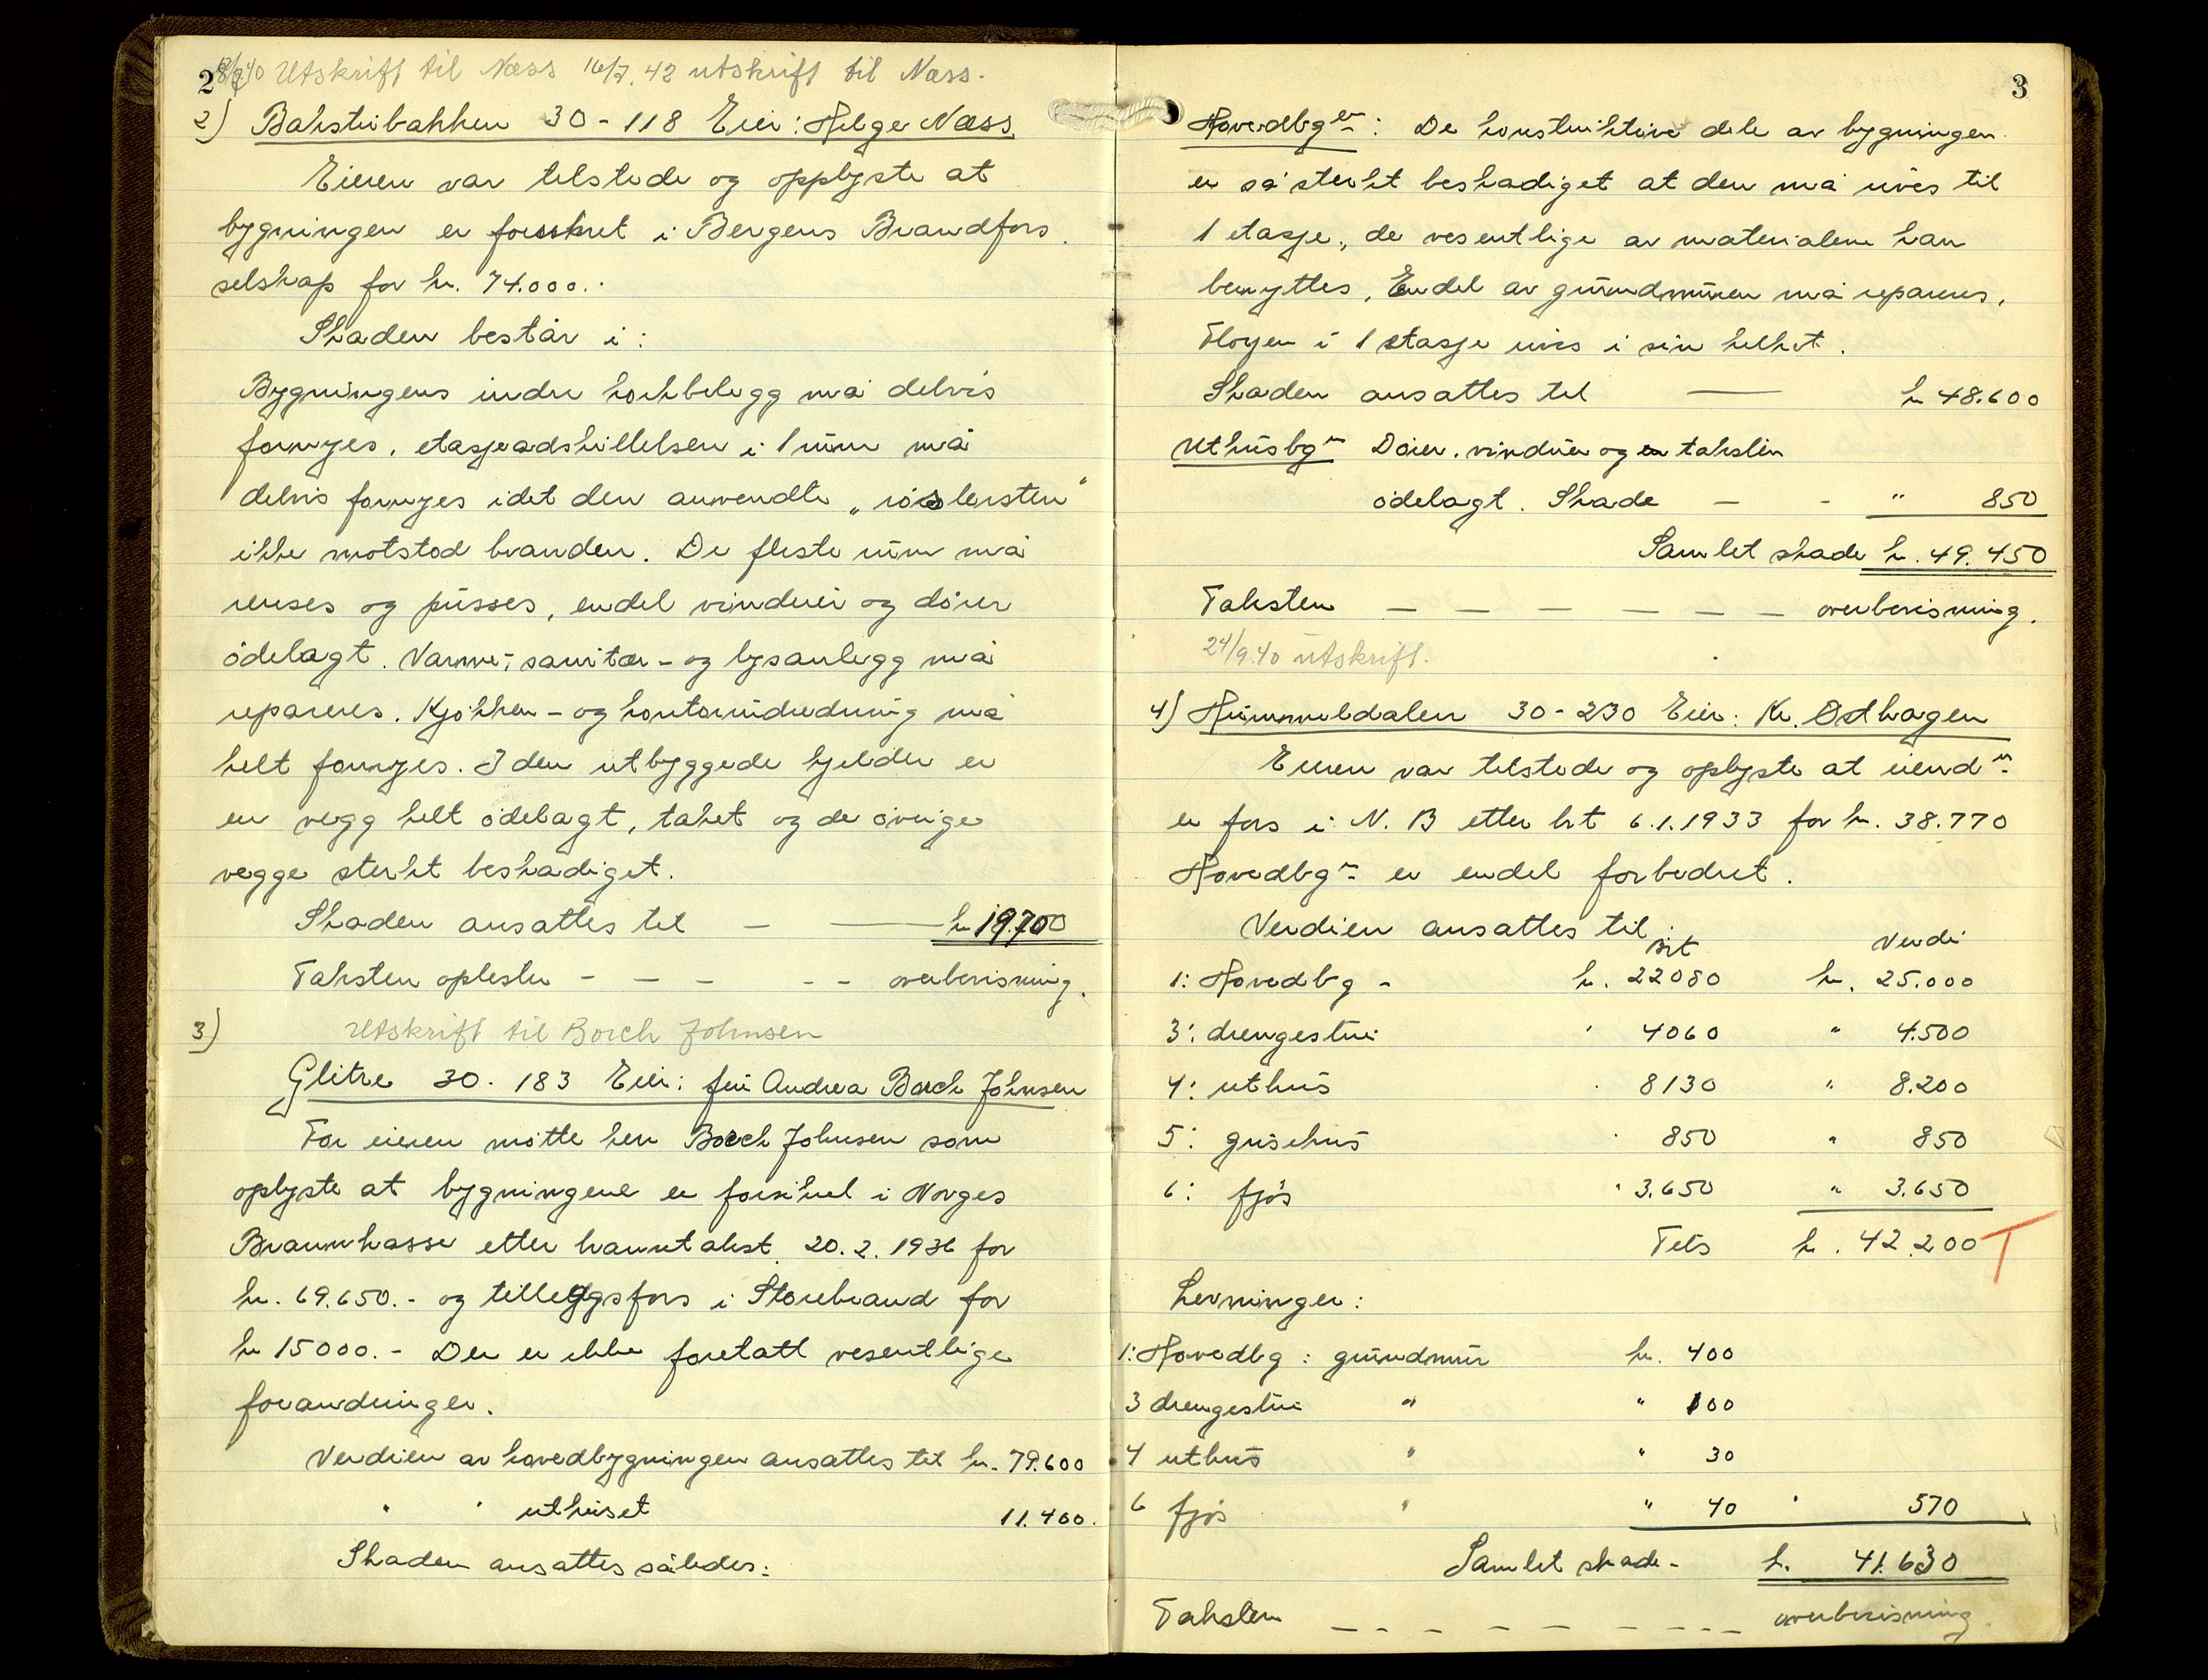 2
8/7.40 Utskrift til Næss 16/7.42 utskrift til Næss.
2) Baksterbakken 30 - 118 Eier: Helge Næss
Eieren var tilstede og opplyste at
bygningen er forsikret i Bergens Brandfors.
selskap for kr. 74.000.-
Skaden består i:
Bygningens indre korkbelegg må delvis
fornyes, etasjeadskillelsen i 1 rum må
delvis fornyes idet den anvendte "
ikke motstod branden. De fleste rum må
renses og pusses, endel vinduer og dører
ødelagt. Varme-, sanitær- og lysanlegg må
repareres. Kjøkken- og kontorindredning må
helt fornyes. I den utbyggede kjelder er
en vegg helt ødelagt, taket og de øvrige
vegge sterkt beskadiget.
Skaden ansattes til — — kr 19.700
Taksten oplestes - - - - - overbevisning.
3) Utskrift til Borch Johnsen
Glitre 30. 183 Eier: fru Andrea Borch Johnsen
For eieren møtte herr Borch Johnsen som
oplyste at bygningene er forsikret i Norges
Brannkasse etter branntakst 20.2.1936 for
kr. 69.650.- og tilleggsfors i Storebrand for
kr 15000.- Der er ikke foretatt vesentlige
forandringer.
Verdien av hovedbygningen ansattes til kr. 79.600
" " uthuset 11.400.
Skaden ansattes således:
3
Hovedbgen: De konstruktive dele av bygningen
er så sterkt beskadiget at den må rives til
1 etasje, de vesentlige av materialene kan
benyttes, Endel av grundmuren må repareres,
Fløyen i 1 etasje rives i sin helhet.
Skaden ansattes til — kr 48.600
Uthusbgn Dører, vinduer og taksten
ødelagt. Skade - - " 850
Samlet skade kr. 49.450
Taksten — — — — — — — overbevisning.
24/9.40 utskrift.
4) Hummeldalen 30-230 Eier: Kr. Østhagen
Eieren var tilstede og oplyste at eiendn
er fors i N. B etter brt 6.1.1933 for kr. 38.770
Hovedbgn er endel forbedret.
Verdien ansattes til:
Brt Verdi
1: Hovedbg - kr. 22080 kr. 25.000
3: drengestue " 4060 " 4.500
4: uthus " 8130 " 8.200
5: grisehus " 850 " 850
6: fjøs " 3.650 " 3.650
Tils kr. 42.200 T
Levninger:
1: Hovedbg: grundmur kr. 400
3 drengestue " " 100
4 uthus " " 30
6 fjøs " " 40 " 570
Samlet skade - kr. 41.630
Taksten — - - - - - - - - overbevisning